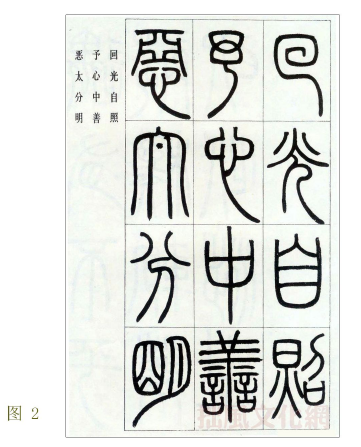 回光自照
予心中善
恶太分明
回光自照
予心中善
恶太分明
图 2